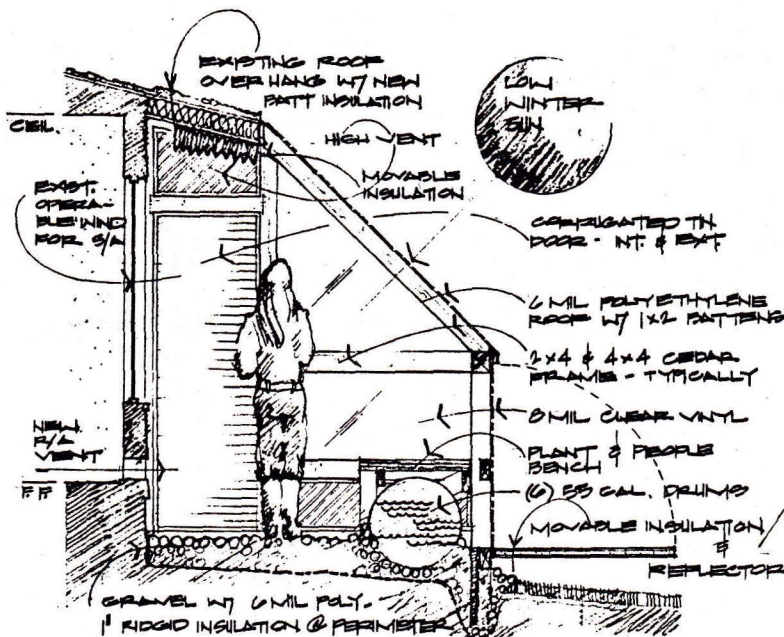 EXISTING ROOF
OVER HANG W/ NEW
BATT INSULATION
LOW
WINTER
SUN
CEIL.
HIGH VENT
MOVABLE
INSULATION
EXIST.
OPERA-
BLE WIND
FOR S/A
CORRUGATED TIN
DOOR - INT. & EXT.
6 MIL POLYETHYLENE
ROOF W/ 1x2 BATTENS
2x4 & 4x4 CEDAR
FRAME - TYPICALLY
8 MIL CLEAR VINYL
NEW
R/A
VENT
PLANT & PEOPLE
BENCH
(6) 55 GAL. DRUMS
FF
MOVABLE INSULATION/
&
REFLECTOR
GRAVEL W/ 6 MIL POLY.
1" RIDGID INSULATION @ PERIMETER